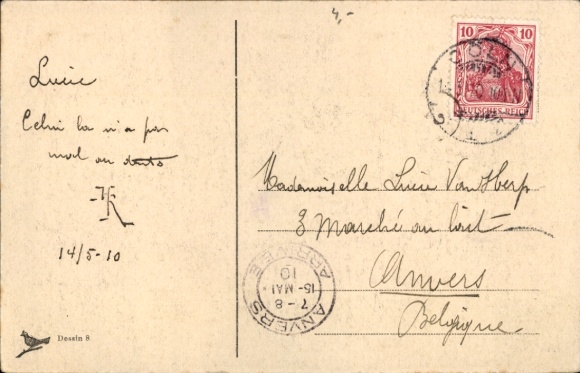 4,-
Lucie
Celui la n'a pas
mal au
14/5-10
Dessin 8
10 10
DEUTSCHES REICH
CÖLN
Mademoiselle Lucie Van Herp
3 Marché au lait
Anvers
Belgique
ANVERS
7-8
15-MAI
10
ARRIVEE